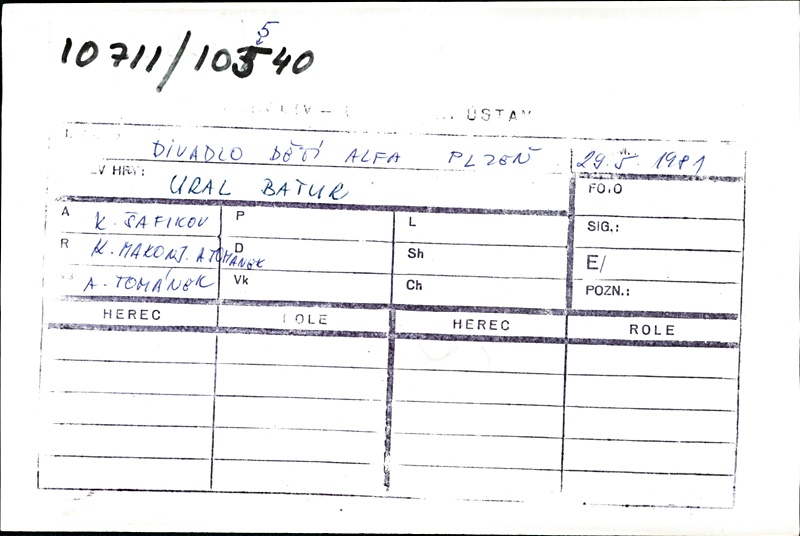 5
10711/10540
ÚSTAV
DIVADLO DĚTÍ ALFA PLZEŇ 29. 5. 1981
V HRY: URAL BATUR
FOTO
A K. ŠAFIKOV P L
SIG.:
R K. MAKONJ. A TOMÁNEK D Sh
E/
A. TOMÁNEK Vk Ch
POZN.:
HEREC ROLE HEREC ROLE